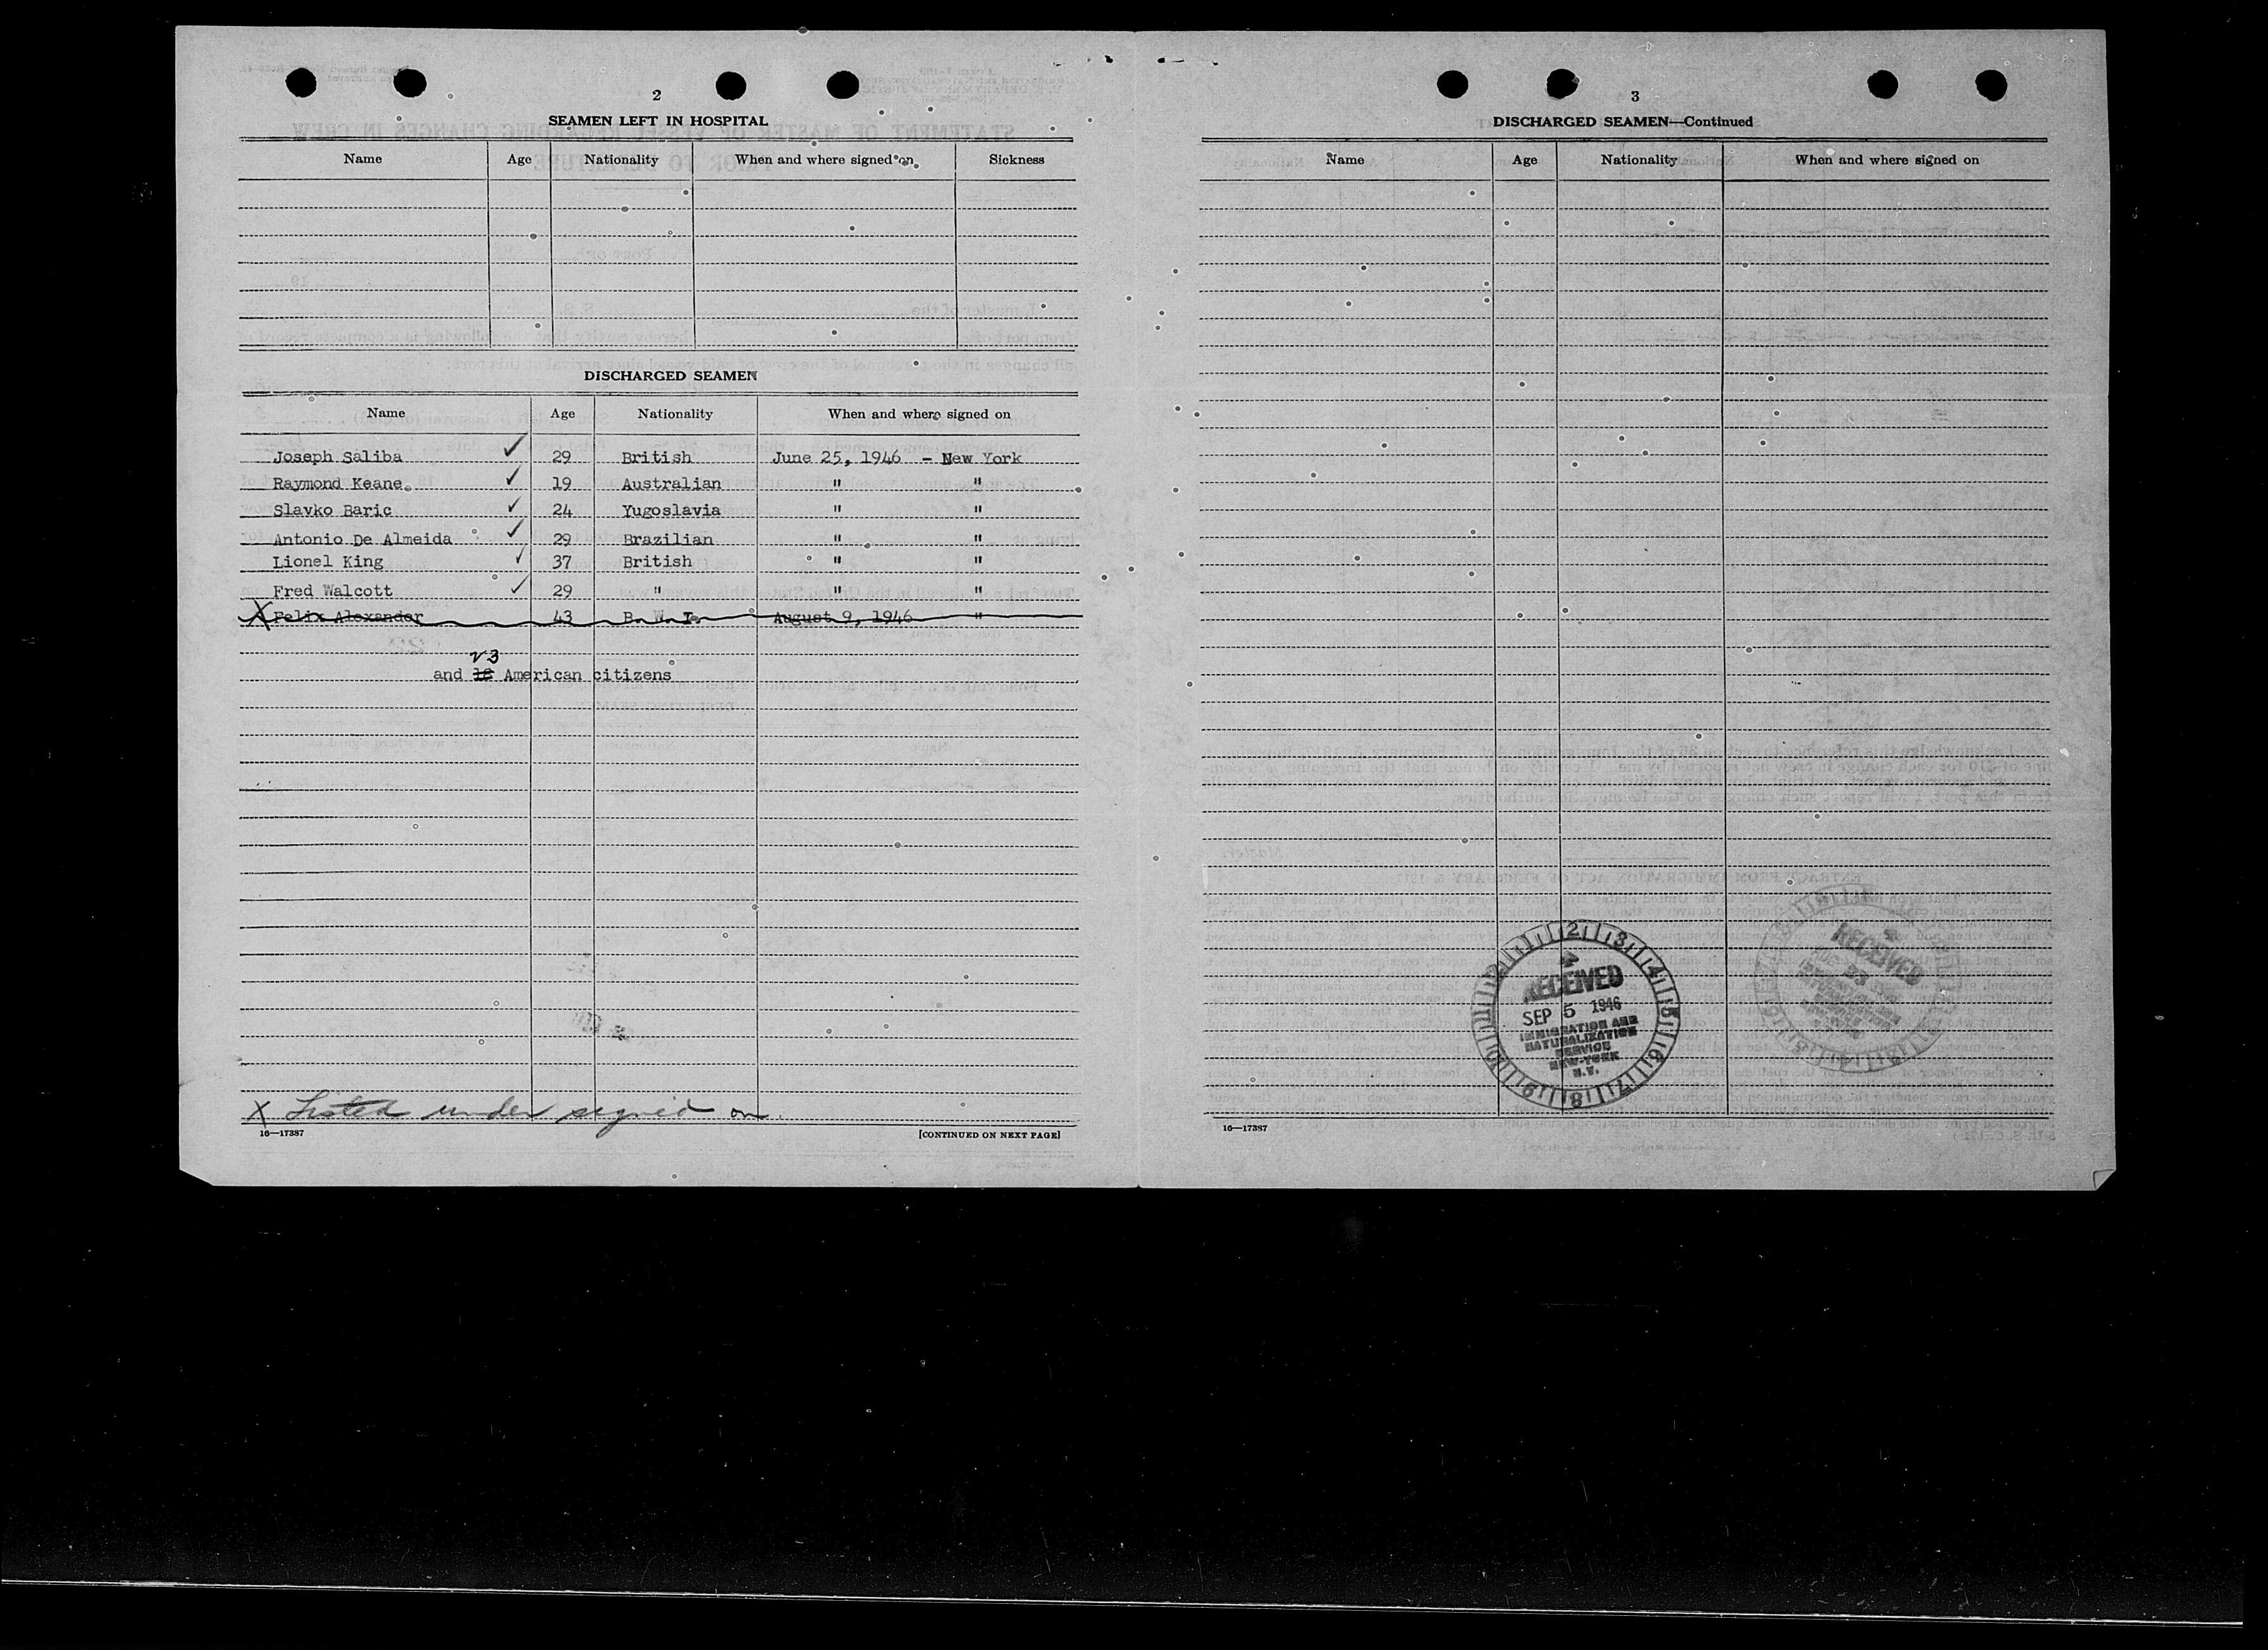 2
SEAMEN LEFT IN HOSPITAL
Name Age Nationality When and where signed on Sickness
DISCHARGED SEAMEN
Name Age Nationality When and where signed on
Joseph Saliba ✓ 29 British June 25, 1946 - New York
Raymond Keane ✓ 19 Australian " "
Slavko Baric ✓ 24 Yugoslavia " "
Antonio De Almeida ✓ 29 Brazilian " "
Lionel King ✓ 37 British " "
Fred Walcott ✓ 29 " " "
X Felix Alexander 43 B. W. I. August 9, 1946 "
and American citizens
X Listed under signed on.
16—17387
[CONTINUED ON NEXT PAGE]
3
DISCHARGED SEAMEN—Continued
Name Age Nationality When and where signed on
RECEIVED
SEP 5 1946
IMMIGRATION AND
NATURALIZATION
SERVICE
NEW-YORK
N.Y.
RECEIVED
16—17387